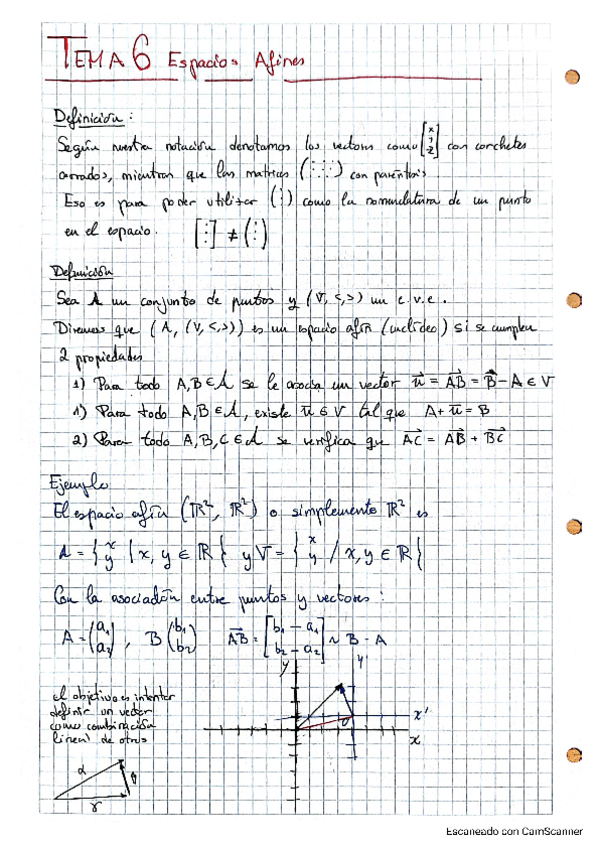 TEMA 6 Espacios Afines
Definición:
Según nuestra notación denotamos los vectores como [x y z] con corchetes
cerrados, mientras que las matrices (⋮⋮⋮) con paréntesis.
Eso es para poder utilizar (⋮) como la nomenclatura de un punto
en el espacio. [⋮] ≠ (⋮)
Definición
Sea A un conjunto de puntos y (V, <,>) un e.v.e.
Diremos que (A, (V, <,>)) es un espacio afín (euclídeo) si se cumplen
2 propiedades
1) Para todo A,B ∈ A se le asocia un vector u⃗ = AB⃗ = B - A ∈ V
1) Para todo A,B ∈ A, existe u⃗ ∈ V tal que A + u⃗ = B
2) Para todo A,B,C ∈ A se verifica que AC⃗ = AB⃗ + BC⃗
Ejemplo
El espacio afín (ℝ², ℝ²) o simplemente ℝ² es
A = { x y | x, y ∈ ℝ } y V = { x y / x, y ∈ ℝ }
Con la asociación entre puntos y vectores:
A = (a₁ a₂), B (b₁ b₂) AB⃗ = [b₁ - a₁ b₂ - a₂] ~ B - A
y y'
el objetivo es intentar
definir un vector
como combinación
lineal de otros
x'
x
α
Escaneado con CamScanner